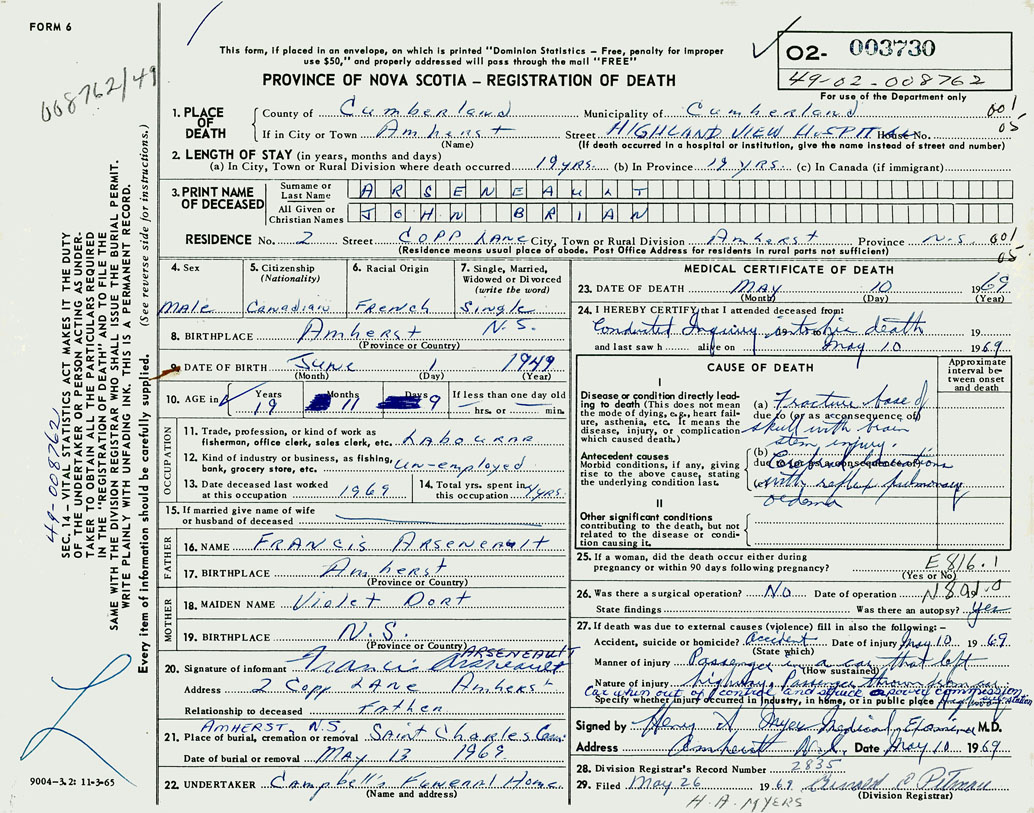 FORM 6
This form, if placed in an envelope, on which is printed "Dominion Statistics – Free, penalty for improper
use $50," and properly addressed will pass through the mail "FREE"
PROVINCE OF NOVA SCOTIA – REGISTRATION OF DEATH
O2- 003730
49-02-008762
For use of the Department only
008762/49
1. PLACE OF DEATH
County of Cumberland Municipality of Cumberland 001
If in City or Town Amherst Street HIGHLAND VIEW HOSPIT House No. 05
(Name) (If death occurred in a hospital or institution, give the name instead of street and number)
2. LENGTH OF STAY (in years, months and days)
(a) In City, Town or Rural Division where death occurred 19 yrs. (b) In Province 19 yrs. (c) In Canada (if immigrant)
3. PRINT NAME OF DECEASED
Surname or Last Name ARSENEAULT
All Given or Christian Names JOHN BRIAN
RESIDENCE No. 2 Street COPP LANE City, Town or Rural Division Amherst Province N.S. 001
(Residence means usual place of abode. Post Office Address for residents in rural parts not sufficient) 05
4. Sex Male
5. Citizenship (Nationality) Canadian
6. Racial Origin French
7. Single, Married, Widowed or Divorced (write the word) Single
8. BIRTHPLACE Amherst N.S.
(Province or Country)
9. DATE OF BIRTH June 1 1949
(Month) (Day) (Year)
10. AGE in Years 19 Months 11 Days 9 If less than one day old
hrs. or min.
OCCUPATION
11. Trade, profession, or kind of work as
fisherman, office clerk, sales clerk, etc. LABOURAR
12. Kind of industry or business, as fishing,
bank, grocery store, etc. un-employed
13. Date deceased last worked
at this occupation 1969
14. Total yrs. spent in
this occupation 4 yrs.
15. If married give name of wife
or husband of deceased
FATHER
16. NAME FRANCIS ARSENEAULT
17. BIRTHPLACE Amherst
(Province or Country)
MOTHER
18. MAIDEN NAME Violet Dort
19. BIRTHPLACE N.S.
(Province or Country)
ARSENEAULT
20. Signature of informant Francis Arseneault
Address 2 Copp LANE Amherst
Relationship to deceased Father
AMHERST, N.S.
21. Place of burial, cremation or removal Saint Charles Cem.
Date of burial or removal MAY 13 1969
22. UNDERTAKER Campbell's Funeral Home
(Name and address)
MEDICAL CERTIFICATE OF DEATH
23. DATE OF DEATH May 10 1969
(Month) (Day) (Year)
24. I HEREBY CERTIFY that I attended deceased from:
Conducted Inquiry into his death
and last saw h alive on May 10 1969
CAUSE OF DEATH
Approximate interval between onset and death
I
Disease or condition directly leading to death (This does not mean
the mode of dying, e.g., heart failure, asthenia, etc. It means the
disease, injury, or complication
which caused death.)
(a) Fracture base of
due to (or as a consequence of)
skull with brain
stem injury.
Antecedent causes
Morbid conditions, if any, giving
rise to the above cause, stating
the underlying condition last.
(b)
due to (or as a consequence of)
(c) with reflex pulmonary
oedema
II
Other significant conditions
contributing to the death, but not
related to the disease or condition causing it.
25. If a woman, did the death occur either during
pregnancy or within 90 days following pregnancy? E816.1
(Yes or No)
26. Was there a surgical operation? No Date of operation
State findings Was there an autopsy? yes
27. If death was due to external causes (violence) fill in also the following:–
Accident, suicide or homicide? Accident Date of injury May 10 1969
(State which)
Manner of injury Passenger in a car that left
(How sustained)
Nature of injury highway. Passenger thrown from
car when out of control and struck a power commission
Specify whether injury occurred in industry, in home, or in public place
Signed by Henry A Myers Medical Examiner M.D.
Address Amherst N.S. Date May 10 1969
28. Division Registrar's Record Number 2835
29. Filed May 26 1969
(Division Registrar)
H.A. MYERS
49-008762
SEC. 14 – VITAL STATISTICS ACT MAKES IT THE DUTY
OF THE UNDERTAKER OR PERSON ACTING AS UNDER-
TAKER TO OBTAIN ALL THE PARTICULARS REQUIRED
IN THE "REGISTRATION OF DEATH" AND TO FILE THE
SAME WITH THE DIVISION REGISTRAR WHO SHALL ISSUE THE BURIAL PERMIT.
WRITE PLAINLY WITH UNFADING INK. THIS IS A PERMANENT RECORD.
Every item of information should be carefully supplied. (See reverse side for instructions.)
9004-3.2: 11-3-65